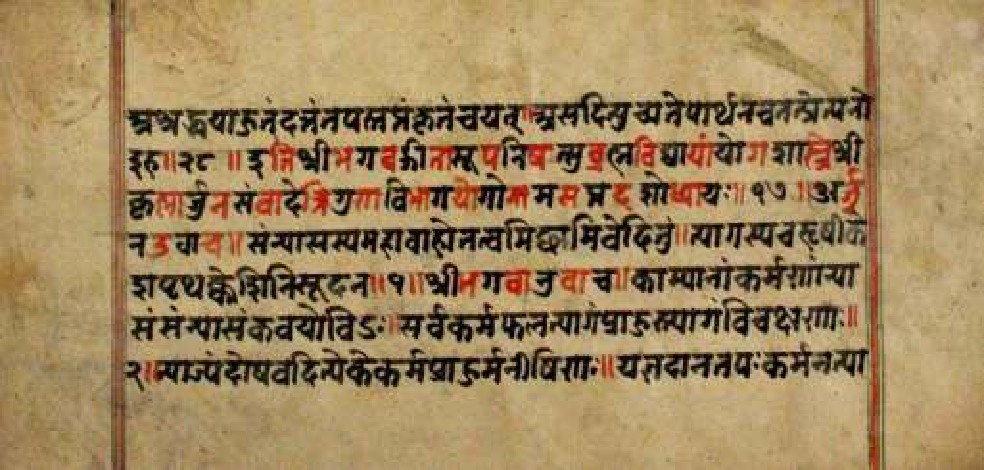 अश्रद्धयाऊतंदत्तंतपस्तप्तंकृतंचयत्॥असदित्युच्यतेपार्थनचतत्प्रेत्यनो
इह॥२८॥इतिश्रीभगवद्गीतासूपनिषत्सुब्रह्मविद्यायांयोगशास्त्रेश्री
कृष्णार्जुनसंवादेत्रिगुणविभागयोगोनामसप्तदशोध्यायः॥१७॥अर्जु
नउवाच॥संन्यासस्यमहाबाहोतत्वमिच्छामिवेदितुं॥त्यागस्यचहृषीके
शपृथक्केशिनिसूदन॥१॥श्रीभगवानुवाच॥काम्यानांकर्मणांन्या
संसंन्यासंकवयोविऽः॥सर्वकर्मफलत्यागंप्राऊस्त्यागंविचक्षणाः॥
२॥त्याज्यंदोषवदित्येकेकर्मप्राऊर्मनीषिणः॥यज्ञदानतपःकर्मनत्या